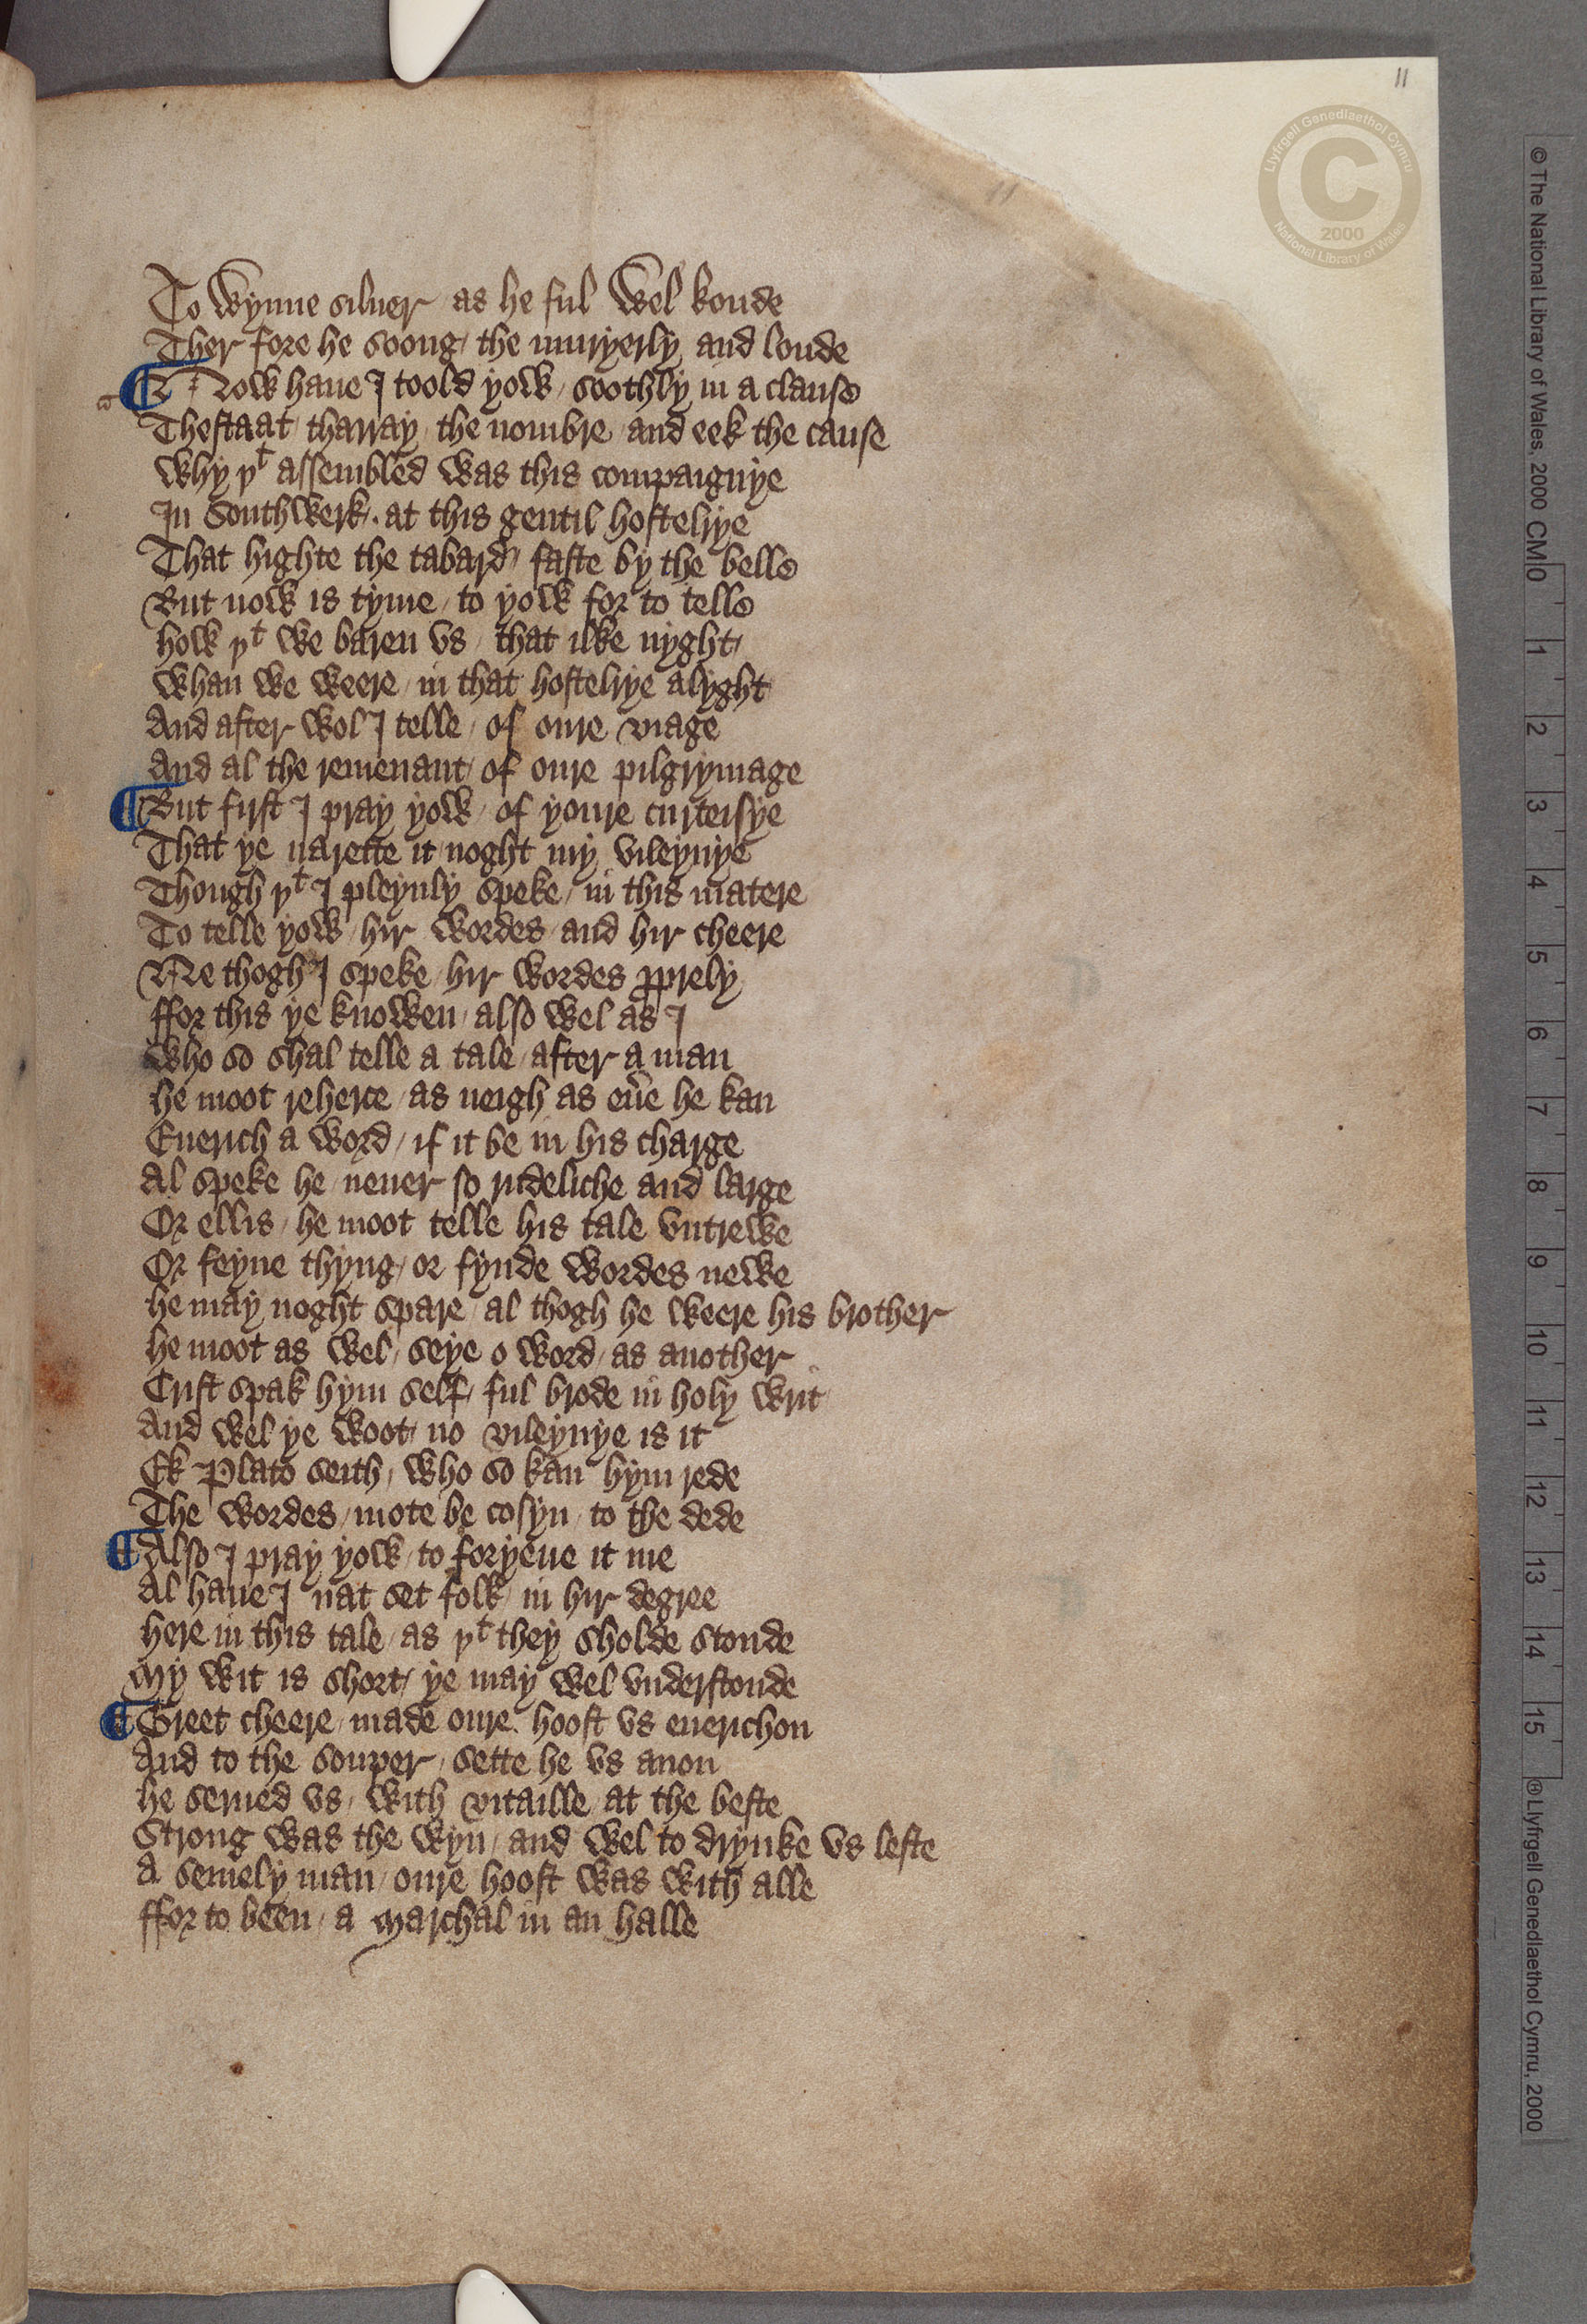 11
To Wynne siluer as he ful Wel koude
Ther fore he soong / the muryerly and loude
¶ Now haue I toold yow / soothly in a clause
Thestaat / tharray / the nombre / and eek the cause
Why þᵗ assembled was this compaignye
In Southwerk /. at this gentil hostelrye
That highte the tabard / faste by the belle
But now is tyme / to yow for to telle
How þᵗ we baren vs / that ilke nyght /
Whan we weere / in that hostelrye alyght
And after wol I telle / of oure viage
And al the remenant / of oure pilgrymage
¶ But first I pray yow / of youre curteisye
That ye narette it noght my vileynye
Though þᵗ I pleynly speke / in this matere
To telle yow / hir wordes / and hir cheere
Ne thogh I speke / hir wordes ꝓprely
ffor this ye knowen / also wel as I
Who so shal telle a tale / after a man
He moot reherce / as neigh as eu͛e he kan
Euerich a word / if it be in his charge
Al speke he / neuer so rudeliche and large
Or ellis / he moot telle his tale vntrewe
Or feyne thyng / or fynde wordes newe
He may noght spare / al thogh he weere his brother
He moot as wel / seye o word / as another
Crist spak hym self / ful brode in holy writ
And wel ye woot / no vileynye is it
Ek Plato seith / who so kan hym rede
The wordes / mote be cosyn / to the dede
¶ Also I pray yow / to foryeue it me
Al haue I nat set folk / in hir degree
Here in this tale / as þᵗ they sholde stonde
My wit is short / ye may wel vnderstonde
¶ Greet cheere / made oure hoost vs euerichon
And to the souper / sette he vs anon
He serued vs / with vitaille / at the beste
Strong was the wyn / and wel to drynke vs leste
A semely man / oure hoost was with alle
ffor to been / a marchal in an halle
Llyfrgell Genedlaethol Cymru
C
2000
National Library of Wales
© The National Library of Wales, 2000 CM
0 1 2 3 4 5 6 7 8 9 10 11 12 13 14 15
® Llyfrgell Genedlaethol Cymru, 2000